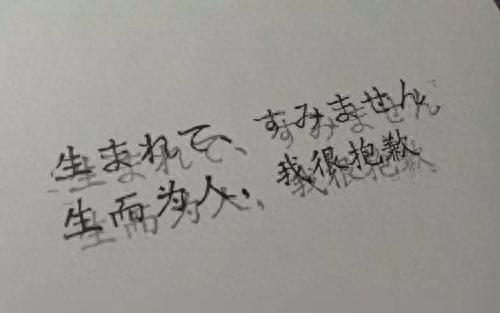 生まれて、すみません。
生而为人，我很抱歉